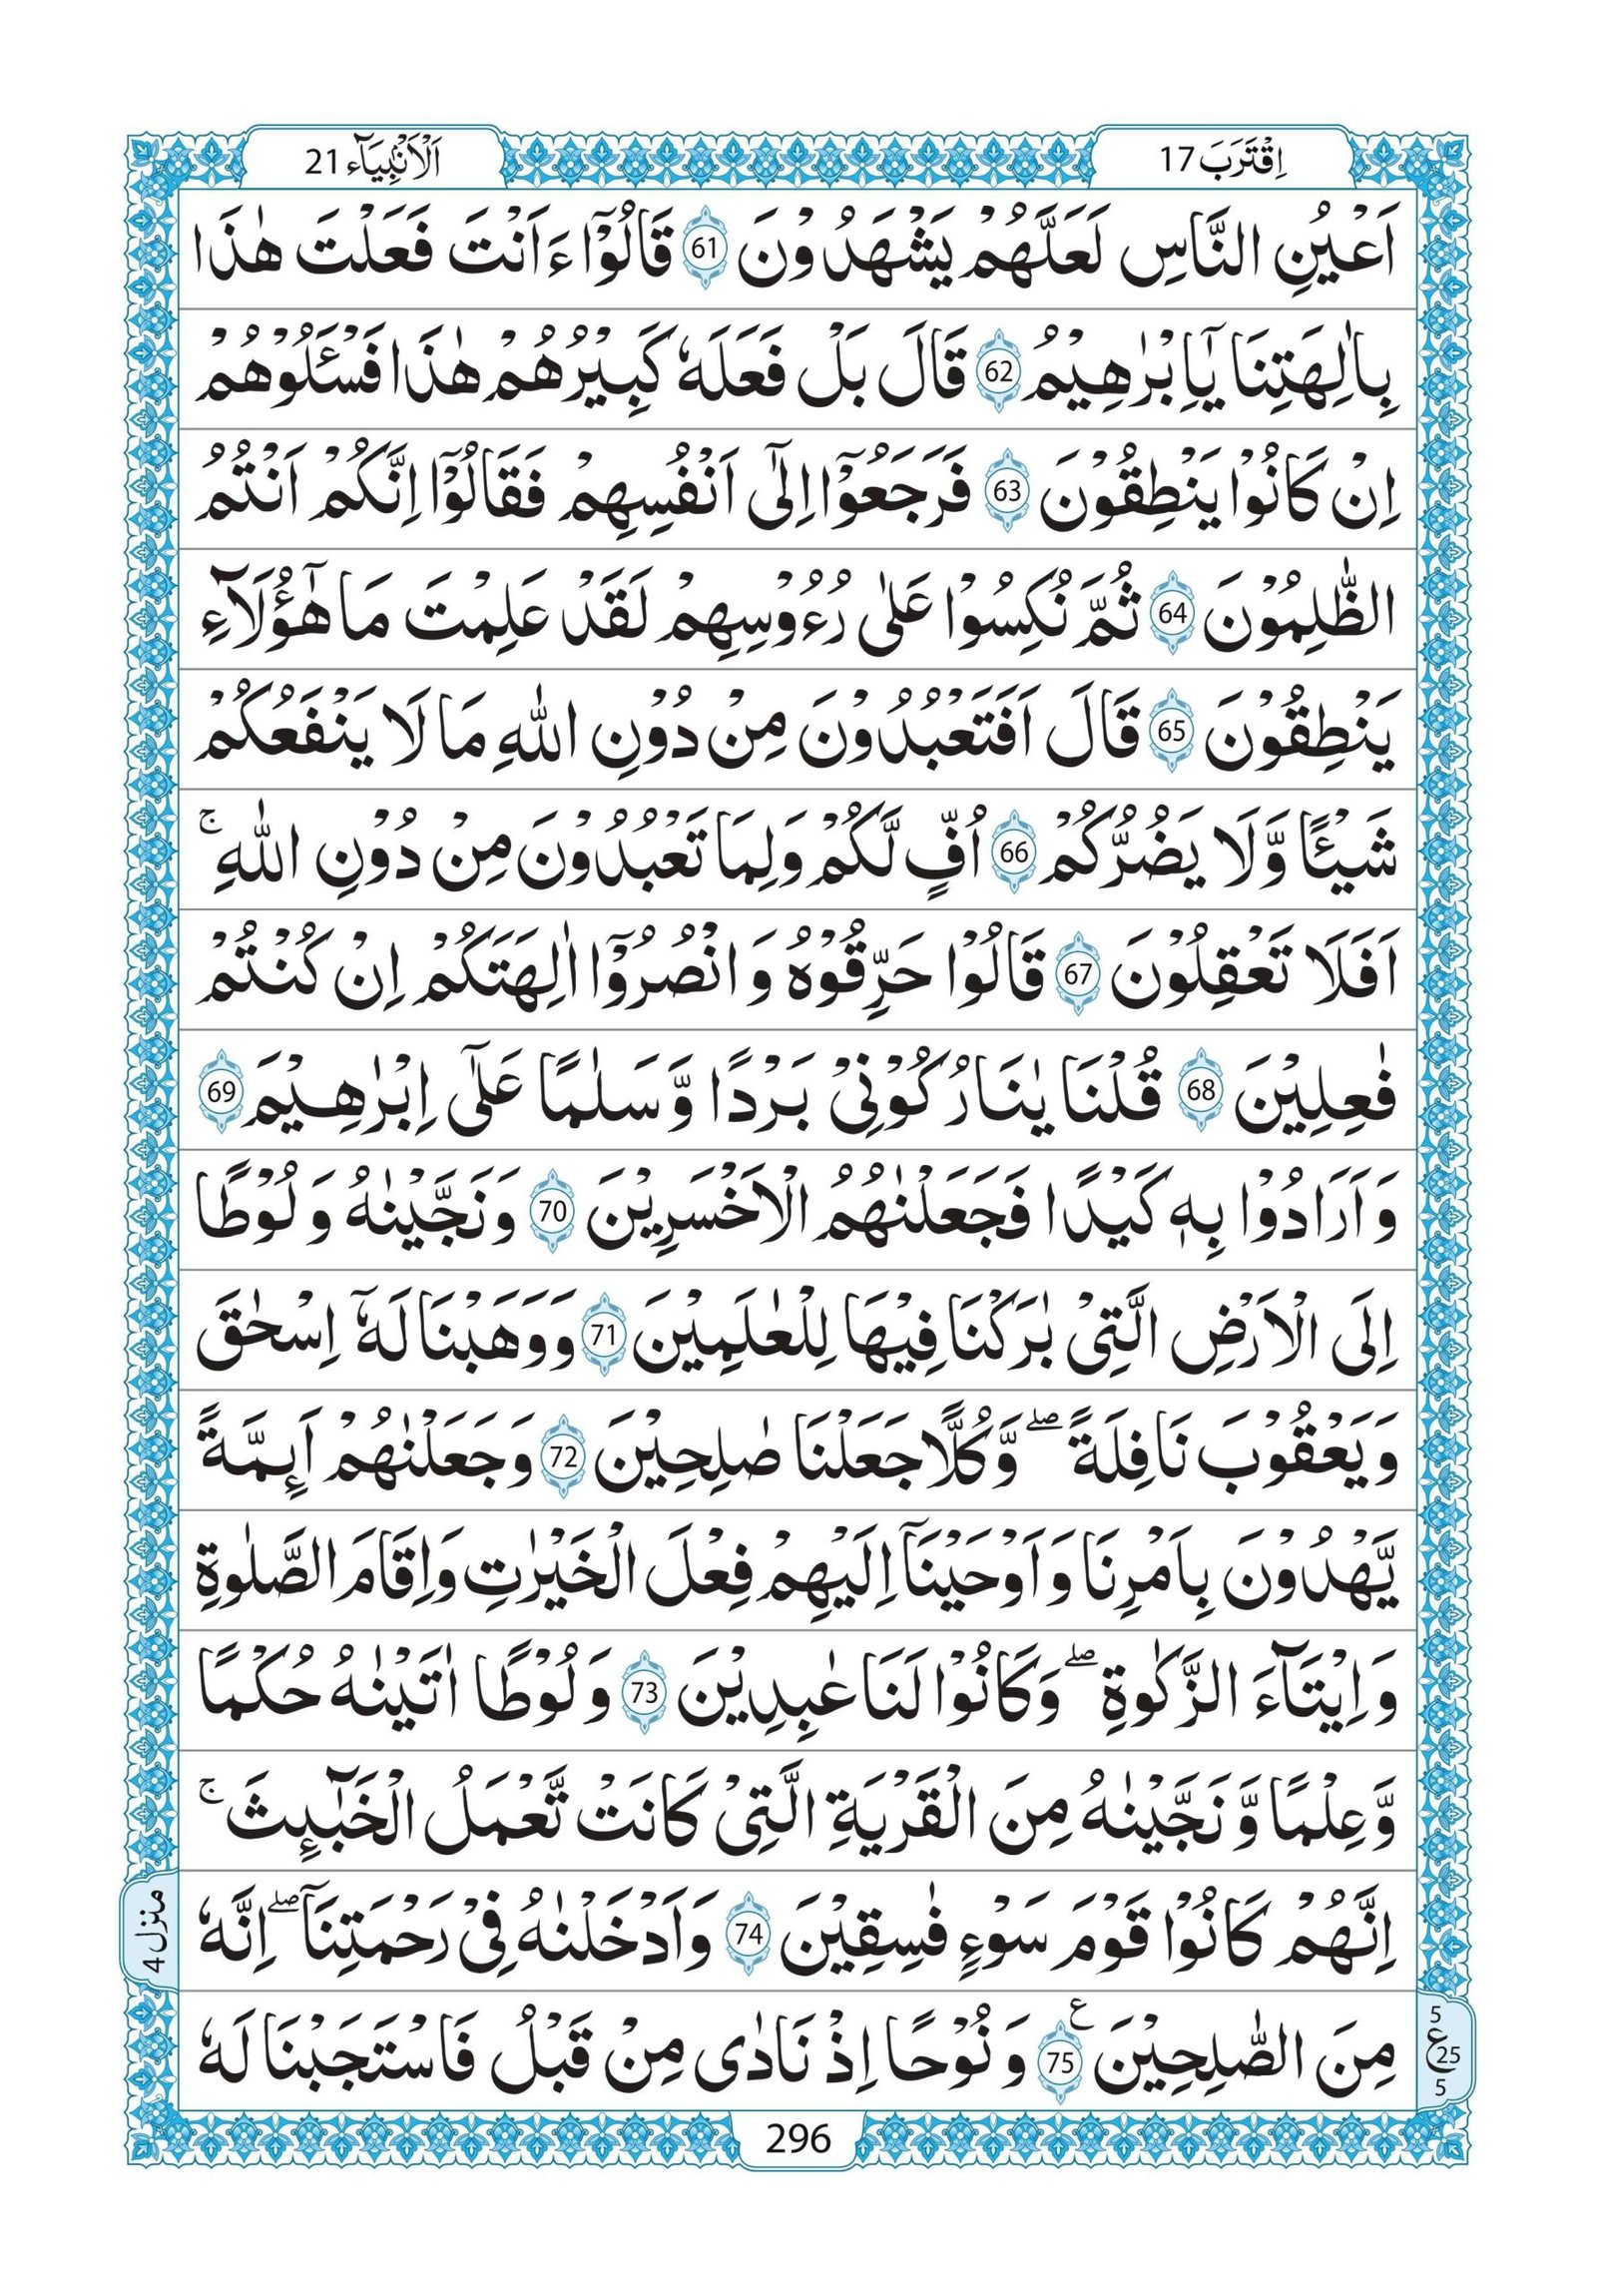 اِقْتَرَبَ 17
اَلْاَنْۢبِيَآء 21
اَعْيُنِ النَّاسِ لَعَلَّهُمْ يَشْهَدُوْنَ 61 قَالُوْۤا ءَاَنْتَ فَعَلْتَ هٰذَا
بِاٰلِهَتِنَا يٰۤاِبْرٰهِيْمُ 62 قَالَ بَلْ فَعَلَهٗ كَبِيْرُهُمْ هٰذَا فَسْـَٔلُوْهُمْ
اِنْ كَانُوْا يَنْطِقُوْنَ 63 فَرَجَعُوْۤا اِلٰۤى اَنْفُسِهِمْ فَقَالُوْۤا اِنَّكُمْ اَنْتُمُ
الظّٰلِمُوْنَ 64 ثُمَّ نُكِسُوْا عَلٰى رُءُوْسِهِمْ لَقَدْ عَلِمْتَ مَا هٰۤؤُلَآءِ
يَنْطِقُوْنَ 65 قَالَ اَفَتَعْبُدُوْنَ مِنْ دُوْنِ اللّٰهِ مَا لَا يَنْفَعُكُمْ
شَيْـًٔا وَّلَا يَضُرُّكُمْ 66 اُفٍّ لَّكُمْ وَلِمَا تَعْبُدُوْنَ مِنْ دُوْنِ اللّٰهِ ۚ
اَفَلَا تَعْقِلُوْنَ 67 قَالُوْا حَرِّقُوْهُ وَانْصُرُوْۤا اٰلِهَتَكُمْ اِنْ كُنْتُمْ
فٰعِلِيْنَ 68 قُلْنَا يٰنَارُ كُوْنِيْ بَرْدًا وَّسَلٰمًا عَلٰۤى اِبْرٰهِيْمَ 69
وَاَرَادُوْا بِهٖ كَيْدًا فَجَعَلْنٰهُمُ الْاَخْسَرِيْنَ 70 وَنَجَّيْنٰهُ وَلُوْطًا
اِلَى الْاَرْضِ الَّتِيْ بٰرَكْنَا فِيْهَا لِلْعٰلَمِيْنَ 71 وَوَهَبْنَا لَهٗۤ اِسْحٰقَ
وَيَعْقُوْبَ نَافِلَةً ۖ وَّكُلًّا جَعَلْنَا صٰلِحِيْنَ 72 وَجَعَلْنٰهُمْ اَئِمَّةً
يَّهْدُوْنَ بِاَمْرِنَا وَاَوْحَيْنَاۤ اِلَيْهِمْ فِعْلَ الْخَيْرٰتِ وَاِقَامَ الصَّلٰوةِ
وَاِيْتَآءَ الزَّكٰوةِ ۖ وَكَانُوْا لَنَا عٰبِدِيْنَ 73 وَلُوْطًا اٰتَيْنٰهُ حُكْمًا
وَّعِلْمًا وَّنَجَّيْنٰهُ مِنَ الْقَرْيَةِ الَّتِيْ كَانَتْ تَّعْمَلُ الْخَبٰٓئِثَ ۚ
اِنَّهُمْ كَانُوْا قَوْمَ سَوْءٍ فٰسِقِيْنَ 74 وَاَدْخَلْنٰهُ فِيْ رَحْمَتِنَاۤ ۖ اِنَّهٗ
منزل 4
مِنَ الصّٰلِحِيْنَ ع 75 وَنُوْحًا اِذْ نَادٰى مِنْ قَبْلُ فَاسْتَجَبْنَا لَهٗ
5
ع 25
5
296